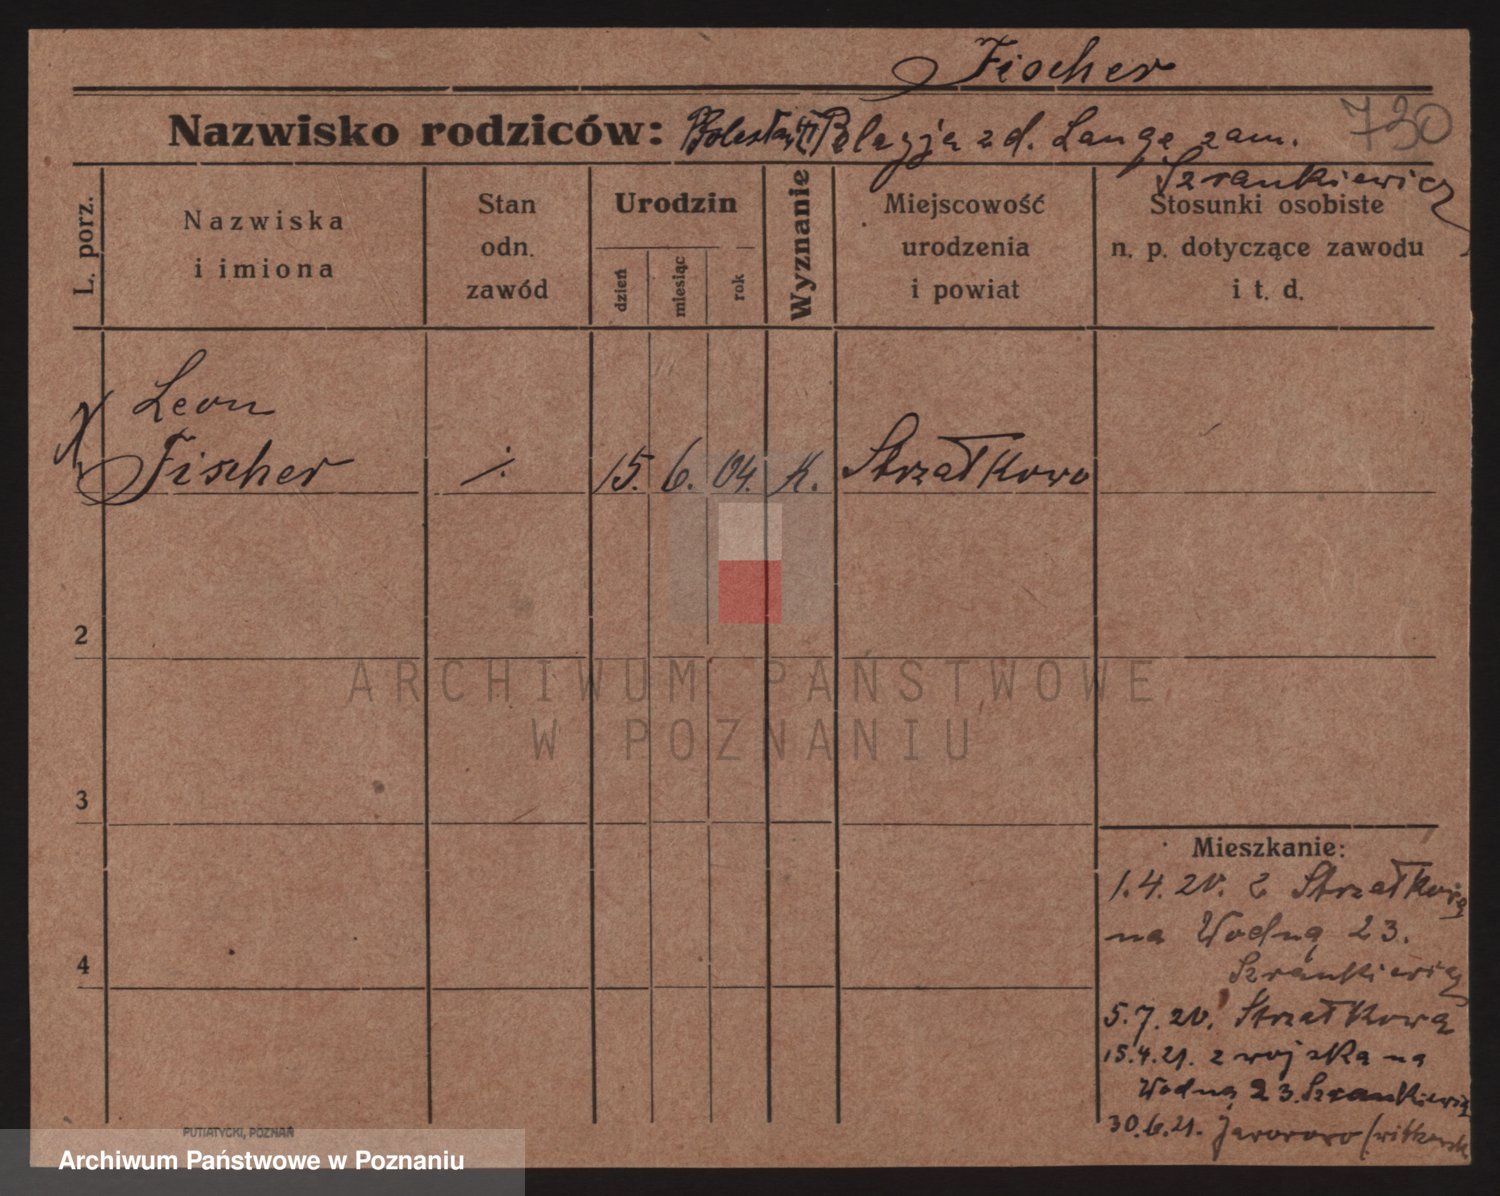 Fischer
Nazwisko rodziców: Bolesław Pelagja z d. Lange zam. 730
Szrankiewicz
L. porz.
Nazwiska
i imiona
Stan
odn.
zawód
Urodzin
dzień
miesiąc
rok
Wyznanie
Miejscowość
urodzenia
i powiat
Stosunki osobiste
n. p. dotyczące zawodu
i t. d.
Leon
Fischer
./. 15. 6. 04. K. Strzałkowo
2
ARCHIWUM PAŃSTWOWE
W POZNANIU
3
4
Mieszkanie:
1.4.20. z Strzałkowa
na Wodną 23.
Szrankiewicz
5.7.20. Strzałkowa
15.4.21. z wojska na
Wodną 23. Szrankiewicz
30.6.21.
PUTIATYCKI, POZNAŃ
Archiwum Państwowe w Poznaniu